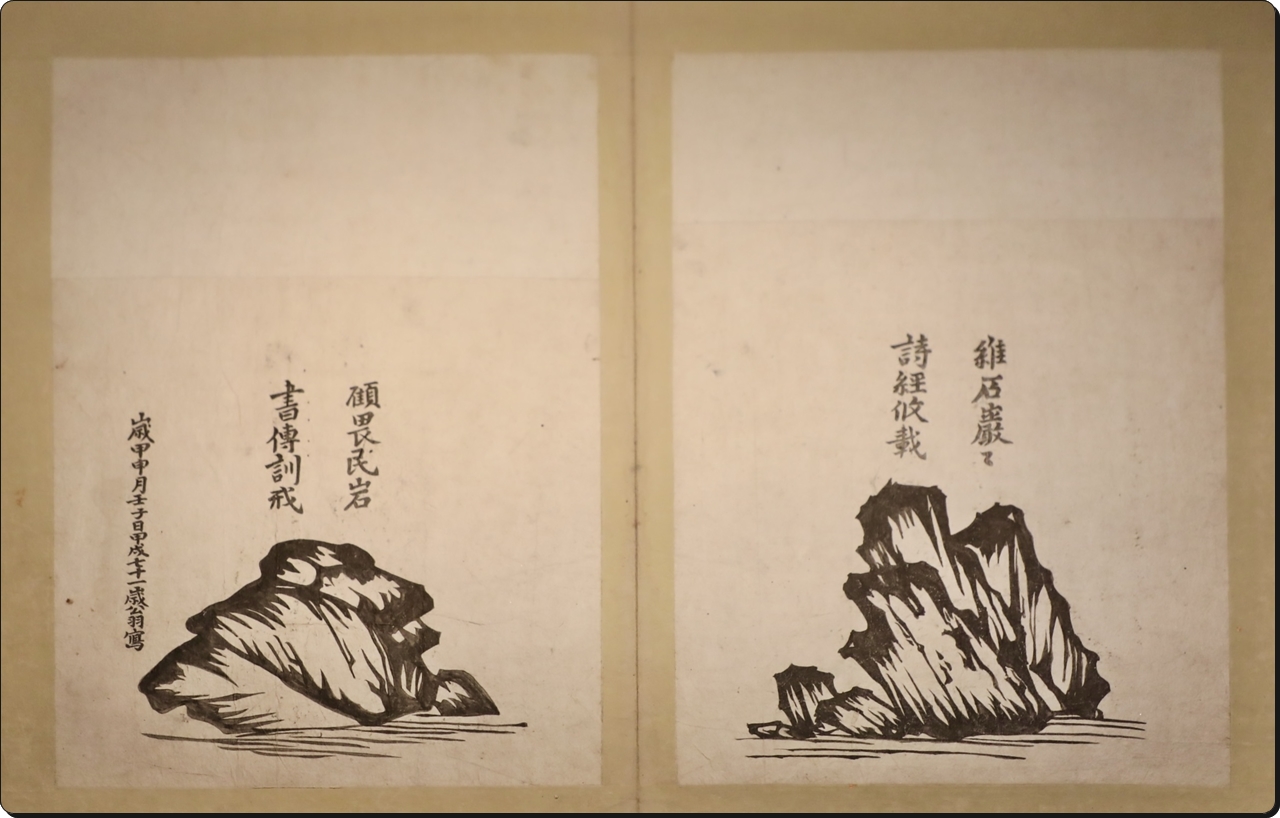 維石巖々
詩經攸載
顧畏民岩
書傳訓戒
歲甲申月壬子日甲戌七十一歲翁寫